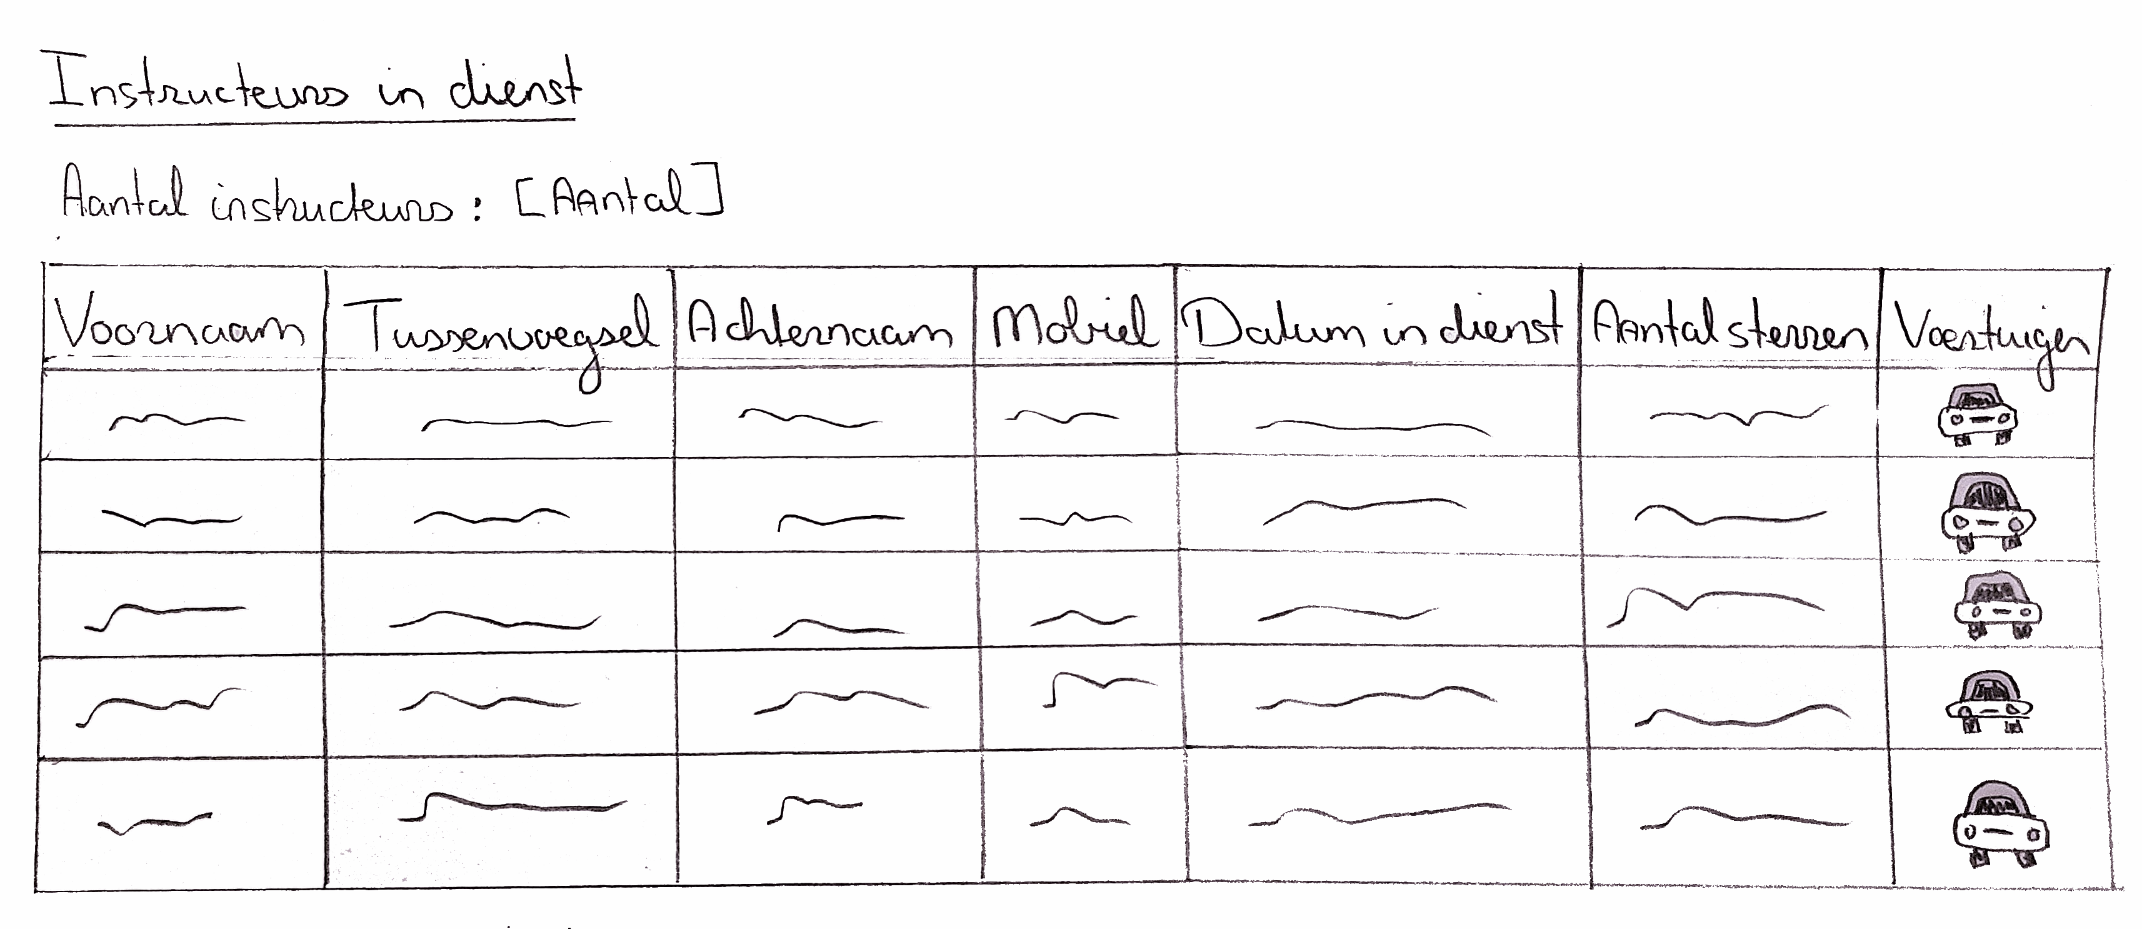 Instructeurs in dienst
Aantal instructeurs: [Aantal]
Voornaam Tussenvoegsel Achternaam Mobiel Datum in dienst Aantal sterren Voertuigen